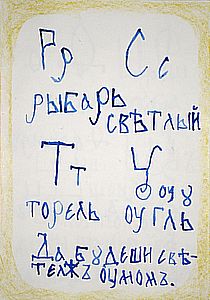 Рр Сс
рыбарь
свѣтлый
Тт Ȣ оу ȣ
торель оугль
Да бȣдеши свѣ-
телъ оумомъ.